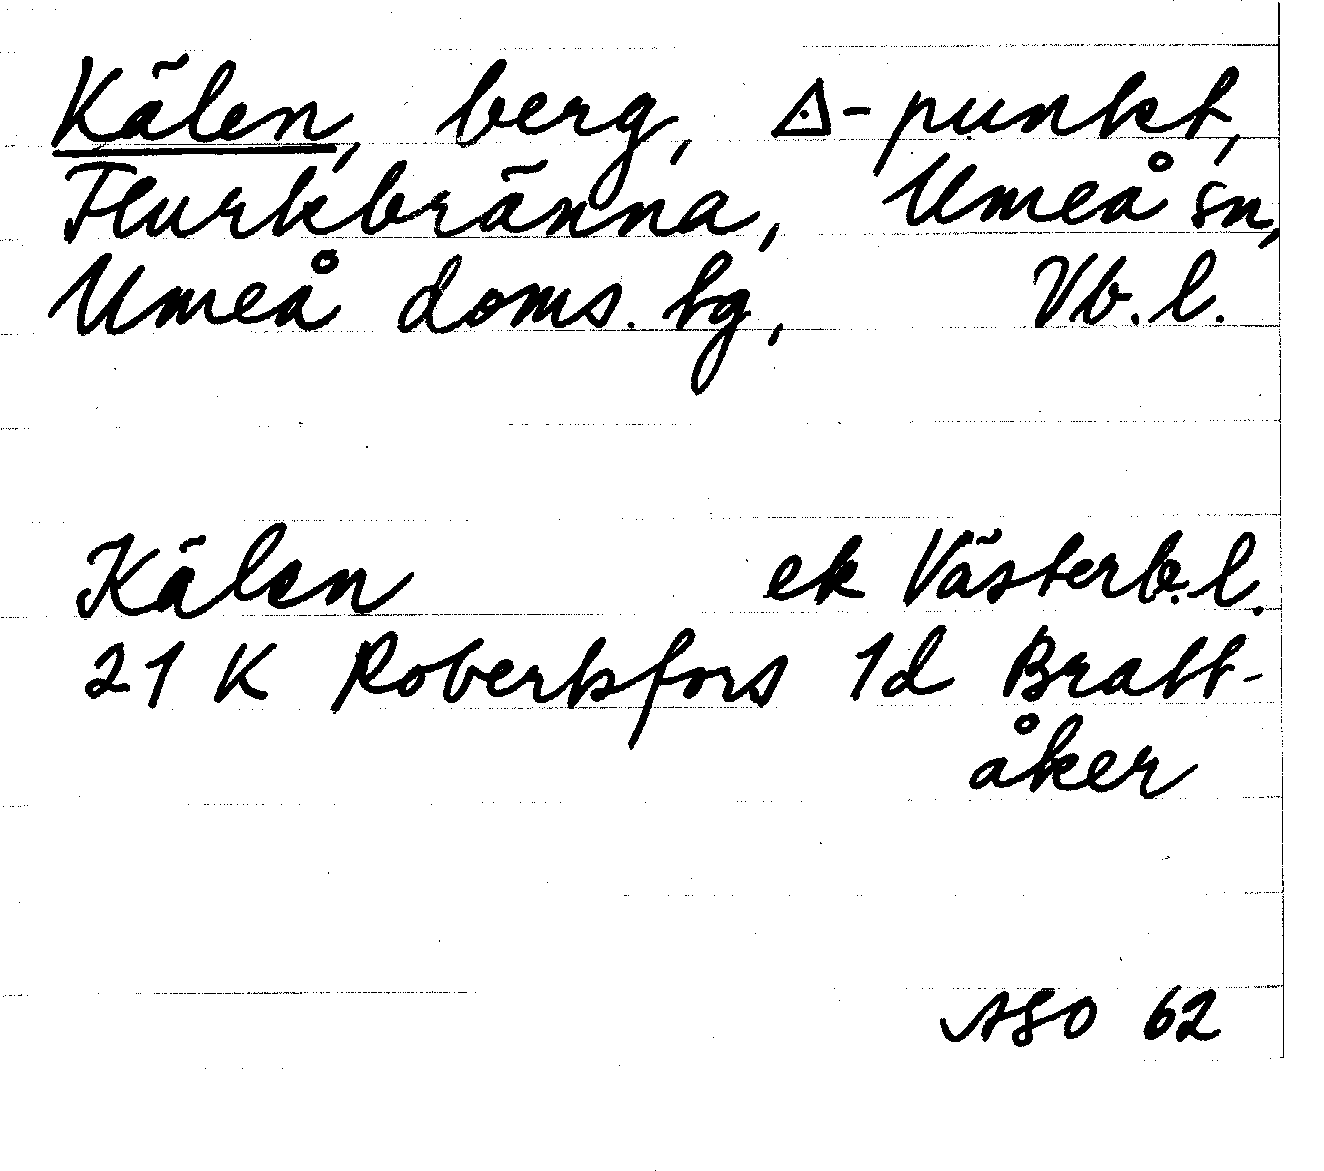 Kälen, berg, △-punkt,
Flurkbränna, Umeå sn,
Umeå doms. hg, Vb. l.
Kälen ek Västerb. l.
21 K Robertsfors 1d Bratt-
åker
ASO 62